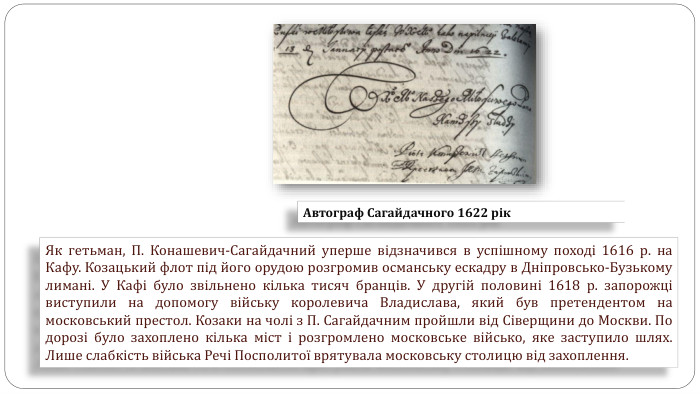 1622.
Автограф Сагайдачного 1622 рік
Як гетьман, П. Конашевич-Сагайдачний уперше відзначився в успішному поході 1616 р. на
Кафу. Козацький флот під його орудою розгромив османську ескадру в Дніпровсько-Бузькому
лимані. У Кафі було звільнено кілька тисяч бранців. У другій половині 1618 р. запорожці
виступили на допомогу війську королевича Владислава, який був претендентом на
московський престол. Козаки на чолі з П. Сагайдачним пройшли від Сіверщини до Москви. По
дорозі було захоплено кілька міст і розгромлено московське військо, яке заступило шлях.
Лише слабкість війська Речі Посполитої врятувала московську столицю від захоплення.